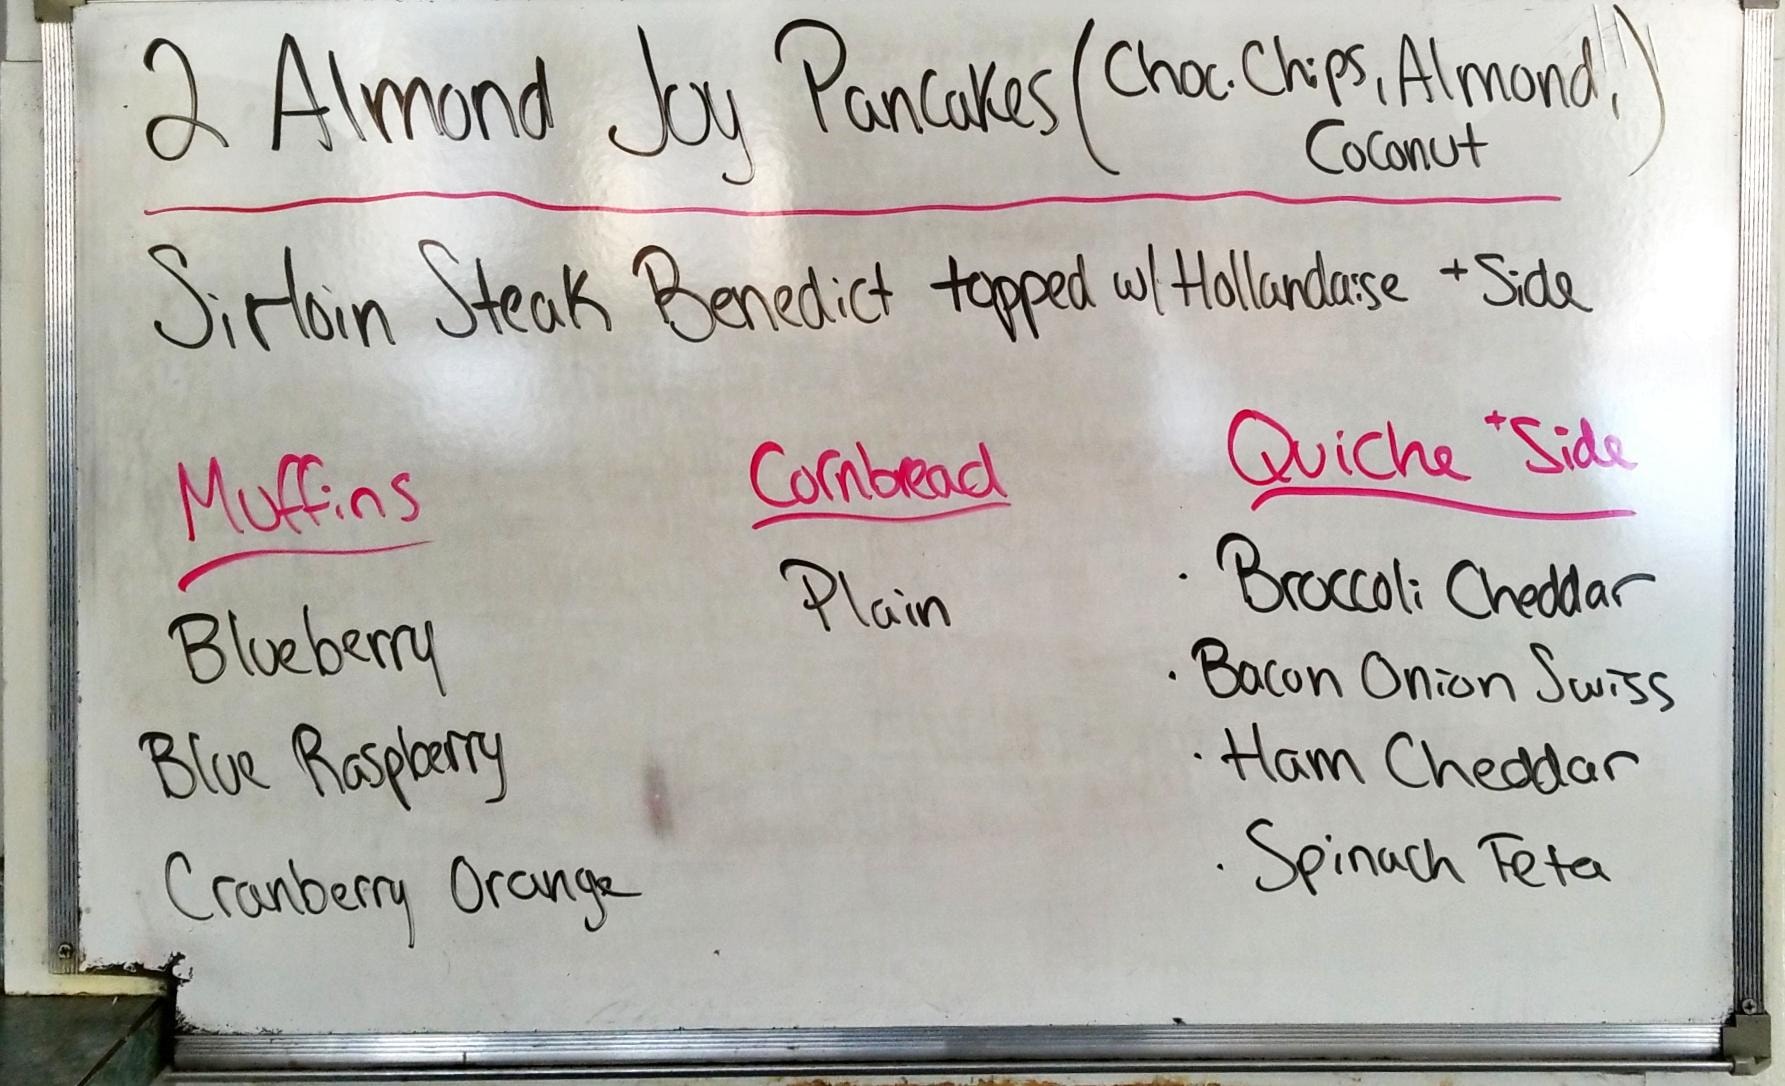 2 Almond Joy Pancakes (Choc. Chips, Almond,
Coconut)
Sirloin Steak Benedict topped w/ Hollandaise + Side
Muffins
Blueberry
Blue Raspberry
Cranberry Orange
Cornbread
Plain
Quiche + Side
· Broccoli Cheddar
· Bacon Onion Swiss
· Ham Cheddar
· Spinach Feta